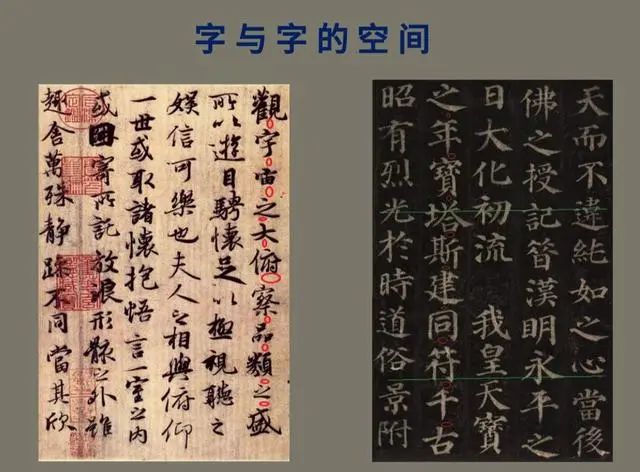 字与字的空间
觀宇宙之大俯察品類之盛
所以遊目騁懷足以極視聽之
娛信可樂也夫人之相與俯仰
一世或取諸懷抱悟言一室之內
或因寄所託放浪形骸之外雖
趣舍萬殊靜躁不同當其欣
天而不違純如之心當後
佛之授記昔漢明永平之
日大化初流 我皇天寶
之年寶塔斯建同符千古
昭有烈光於時道俗景附